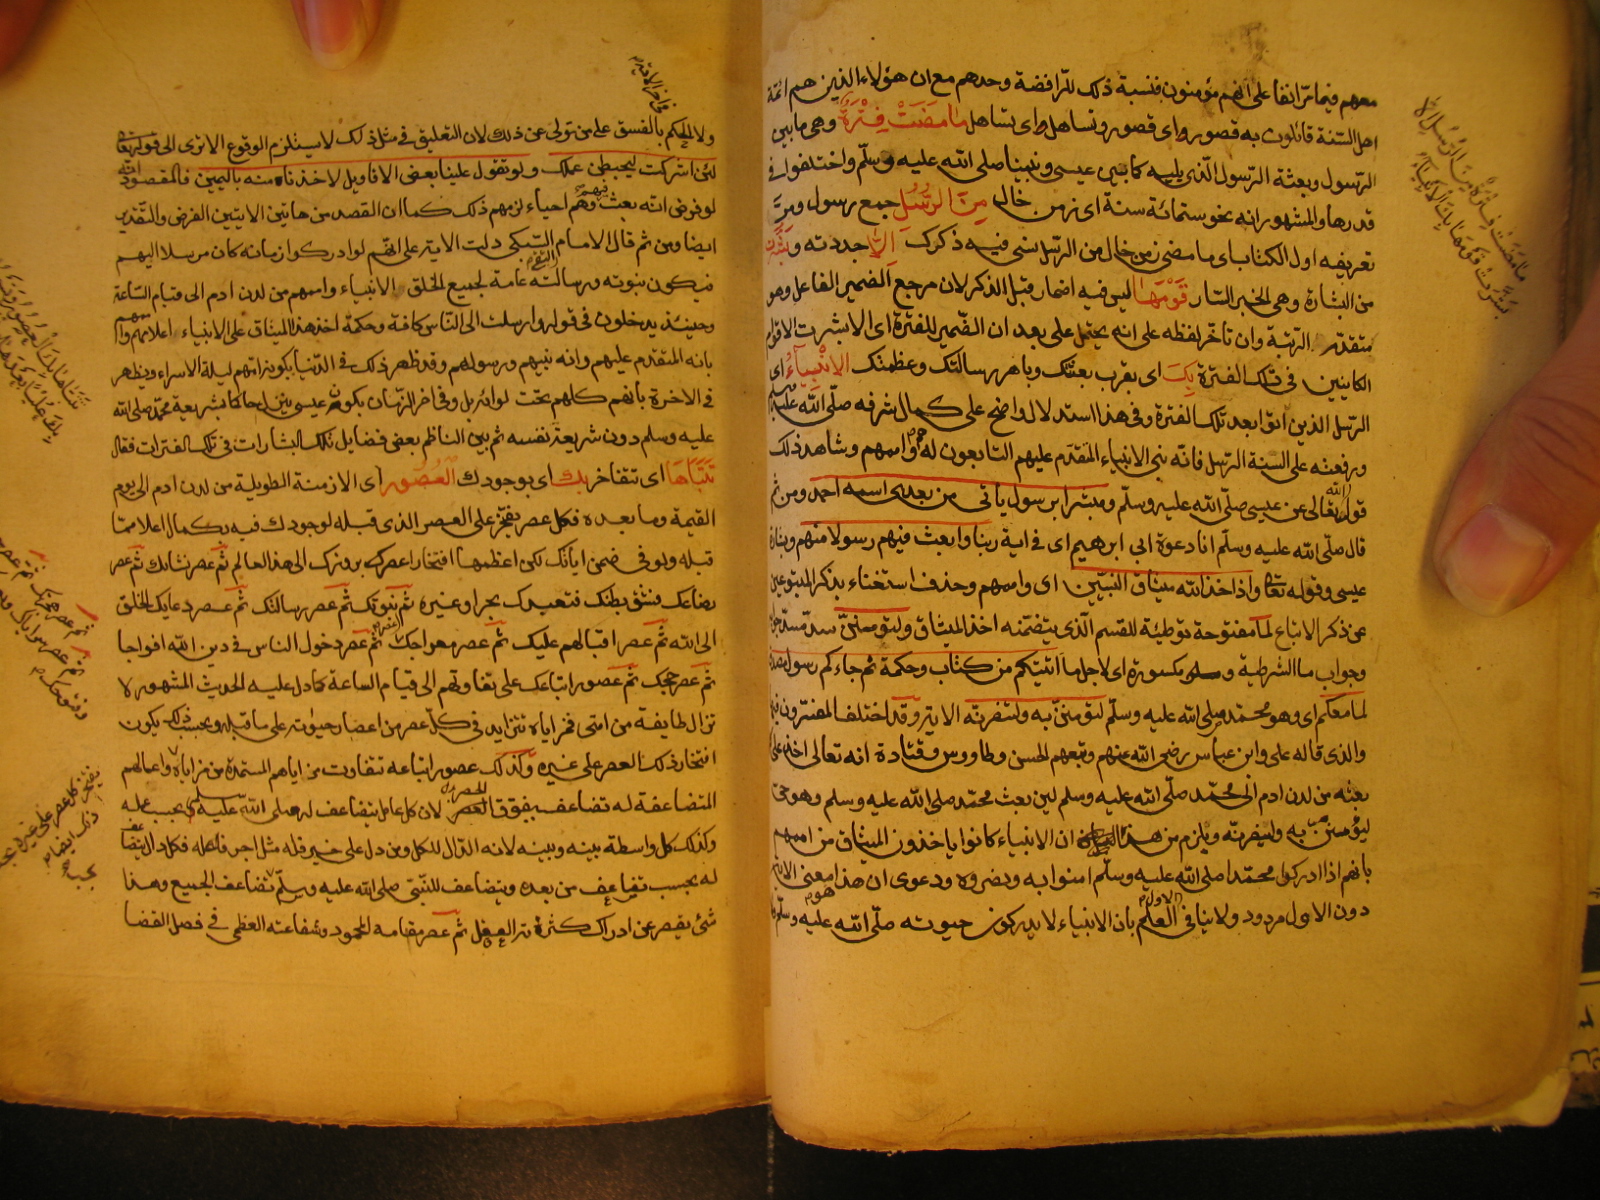 معهم فيما مرّ انفا على انهم مؤمنون فنسبة ذلك للرّافضة وحدهم مع ان هؤلاء الذين هم ائمّة
اهل السّنة قائلون به قصور واى قصور وتساهل واى تساهل ما مضت فترة وهى ما بين
الرّسول وبعثة الرّسول الّذى يليه كما بين عيسى ونبينا صلى الله عليه وسلّم واختلفوا فى
قدرها والمشهور انه نحو ستمائة سنة اى زمن خال من الرّسل جمع رسول ومرّ
تعريفه اول الكتاب اى ما مضى زمن خال من الرّسل نسى فيه ذكرك الّا جددته وبشّرت
من البشارة وهى الخبر السّار قومها ليس فيه اضمار قبل الذكر لان مرجع الضمير الفاعل وهو
متقدّم الرّتبة وان تأخّر لفظه على انه يحتمل على بعد ان الضّمير للفترة اى الا بشرت الاقوام
الكاينين فى تلك الفترة بك اى بقرب بعثتك وباهر رسالتك وعظمتك الانبياء اى
الرّسل الذين اتوا بعد تلك الفترة وفى هذا استدلال واضح على كمال شرفه صلّى الله عليه وسلم
ورفعته على السنة الرّسل فانّه نبى الانبياء المتقدّم عليهم التابعون له هم واممهم وشاهد ذلك
قول الله تعالى عن عيسى صلّى الله عليه وسلّم ومبشرا برسول يأتى من بعدى اسمه احمد ومن ثم
قال صلّى الله عليه وسلّم انا دعوة ابى ابرهيم اى فى اية ربنا وابعث فيهم رسولا منهم وبشارة
عيسى وقوله تعالى واذ اخذ الله ميثاق النبيّين اى واممهم وحذف استغناء بذكر المتبوعين
عن ذكر الاتباع لما مفتوحة توطية للقسم الّذى يتضمّنه اخذ الميثاق ولتومننّ سدّ مسدّ جوابه
وجواب ما الشرطية ومكسورة اى لاجل ما اتيتكم من كتاب وحكمة ثم جاءكم رسول مصدق
لما معكم اى وهو محمّد صلى الله عليه وسلّم لتؤمننّ به ولتنصرنّه الاية وقد اختلف المفسّرون فيها
والذى قاله على وابن عباس رضى الله عنهم وتبعهم الحسن وطاووس وقتادة انه تعالى اخذ على كل
بعثه من لدن ادم الى محمّد صلّى الله عليه وسلم لين بعث محمّد صلى الله عليه وسلم وهو حى
ليؤمننّ به ولينصرنّه ويلزم من هذا ان الانبياء كانوا ياخذون الميثاق من اممهم
بانهم اذا ادركوا محمّدا صلى الله عليه وسلّم امنوا به ونصروه ودعوى ان هذا معنى الاية
دون الاول مردود ولا ينافى الاول العلم بان الانبياء لا يدركون حيوته صلّى الله عليه وسلّم
ما مضت فترة من الرّسل الّا
بشّرت قومها بك الانبياء
ولا الحكم بالفسق على من تولى عن ذلك لان التعليق فى مثل ذلك لا يستلزم الوقوع الا ترى الى قوله تعالى
لئن اشركت ليحبطن عملك ولو تقول علينا بعض الاقاويل لاخذنا منه باليمين فالمقصود انه
لو فرض انه بعث وهم احياء لزمهم ذلك كما ان القصد من هاتين الايتين الفرض والتّقدير
ايضا ومن ثم قال الامام السّبكى دلت الاية على انّهم لو ادركوا زمانه كان مرسلا اليهم
فيكون نبوته ورسالته عامة لجميع الخلق الانبياء واممهم من لدن ادم الى قيام السّاعة
وحينئذ يدخلون فى قوله وارسلت الى النّاس كافة وحكمة اخذ هذا الميثاق على الانبياء اعلامهم واممهم
بانه المتقدم عليهم وانه نبيهم ورسولهم وقد ظهر ذلك فى الدّنيا بكونه امّهم ليلة الاسراء ويظهر
فى الاخرة بأنهم كلهم تحت لوائه بل وفى اخر الزمان بكون عيسى ينزل حاكما بشريعة محمّد صلى الله
عليه وسلم دون شريعة نفسه ثم بين الناظم بعض فضايل تلك البشارات فى تلك الفترات فقال
تتباها اى تتفاخر بك اى بوجودك العصور اى الازمنة الطويلة من لدن ادم الى يوم
القيمة وما بعده فكل عصر يفخر على العصر الذى قبله لوجودك فيه بكمال اعلا ممّا
قبله ولو فى ضمن ابائك لكن اعظمها افتخارا عصر بروزك الى هذا العالم ثم عصر نشأتك ثم عصر
رضاعك فشق بطنك فتعبدك بحراء وغيره ثم نبوتك ثم عصر رسالتك ثم عصر دعايك الخلق
الى الله ثم عصر اقبالهم عليك ثم عصر معراجك ثم عصر دخول الناس فى دين الله افواجا
ثم عصر حجك ثم عصور اتباعك على تفاوتهم الى قيام الساعة كما دل عليه الحديث المشهور لا
تزال طايفة من امتى فمزاياه تتزايد فى كلّ عصر من اعصار حيوته على ما قبله وبحسب ذلك يكون
افتخار ذلك العصر على غيره وكذلك عصور اتباعه تتفاوت مزاياهم المستمدة من مزاياه واعمالهم
المتضاعفة له تضاعفا يفوق العصر لان كل عامل يتضاعف له صلى الله عليه وسلم بحسب عمله
وكذلك كل واسطة بينه وبينه لانه الدّال للكل ومن دل على خير فله مثل اجر فاعله فكل دال يتضاعف
له بحسب تضاعف من بعده ويتضاعف للنّبى صلى الله عليه وسلّم تضاعف الجميع وهذا
شئ يقصر عن ادراك كثرته العقل ثم عصر مقامه المحمود وشفاعته العظمى فى فصل القضا
تتباها بك العصور وتسمو
بك علياء بعدها علياء